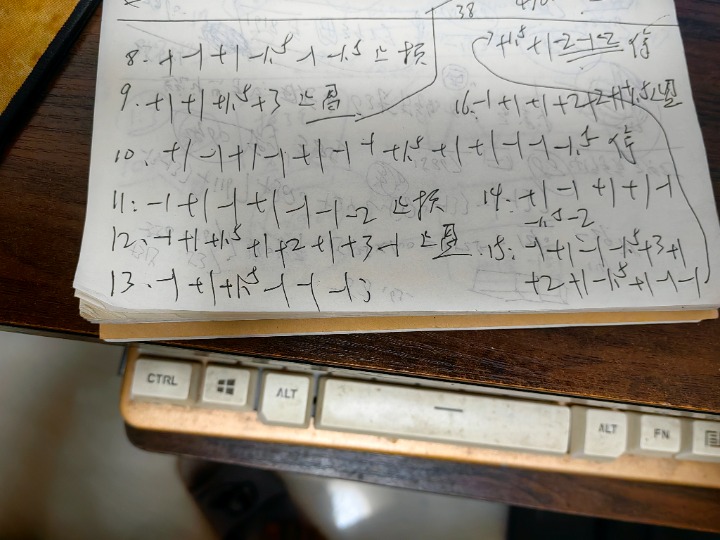 38
8. +1 -1 +1 -1.5 -1 -1.5 止损
+1.5 +1 -2 -1 -2 停
9. +1 +1 +1.5 +3 止盈
16. -1 +1 +1 +2 +2 +1 +1.5 止盈
10. +1 -1 +1 -1 +1 -1 -1 +1.5 +1 +1 -1 -1 -1.5 停
11: -1 +1 -1 +1 -1 -1 -2 止损
14. +1 -1 +1 +1 -1
-1.5 -2
12. -1 +1 +1.5 +1 +2 +1 +3 -1 止盈
15: -1 +1 -1 -1.5 +3 +1
+2 +1 -1.5 +1 -1 -1
13. -1 +1 +1.5 -1 -1 -1;
CTRL ALT ALT FN